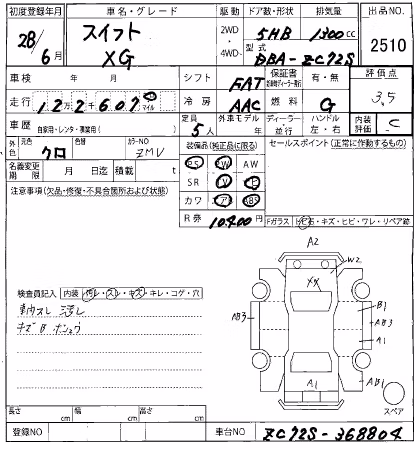 初度登録年月
車名・グレード
駆動
ドア数・形状
排気量
出品NO
28年
6月
スイフト
XG
2WD
・
4WD
5HB
1300cc
型式
DBA-ZC72S
2510
車検
年 月
シフト
FAT
保証書
有・無
評価点
3.5
走行
12万2千607
マイル
冷房
AAC
燃料
G
車歴
自家用・レンタ・事業用( )
定員
5人
外車モデル
年
ディーラー
・
並行
ハンドル
左・右
内装
評価
C
外色
元色
クロ
色替
カラーNO
ZMV
装備品(純正品に限る)
セールスポイント(正常に作動するもの)
PS PW AW
名義変更
期限
月 日迄
積載
t
SR
カワ エアB ABS
注意事項(欠品・修復・不具合箇所および状態)
R券
10400円
Fガラス
トビ石・キズ・ヒビ・ワレ・リペア跡
A2
W2
検査員記入
内装
汚レ・スレ・キズ・キレ・コゲ・穴
B1
AB3
AB3
A1
A1
AB1
スペア
長さ
cm
幅
cm
高さ
cm
登録NO
車台NO
ZC72S-368804